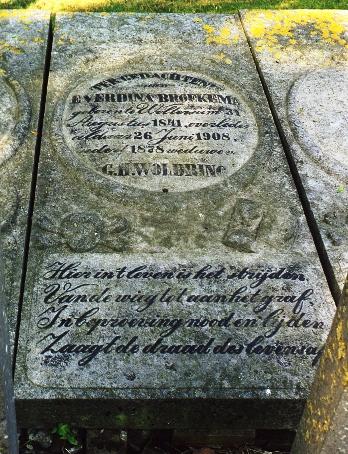 TER GEDACHTENIS
van
EVERDINA BROEKEMA
geboren 31
Augustus 1841, overleden
aldaar 26 Juni 1908,
sedert 1878 weduwe van
G.H. WOLDRING
Hier in't leven is het strijden
Van de wieg tot aan het graf.
In beproeving nood en lijden
Zaagt de draad des levens af